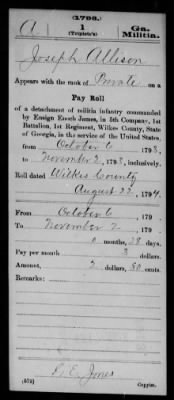 (1793.)
A | 1 | Ga.
(Troplett's) | Militia.
Joseph Allison
Appears with the rank of Private on a
Pay Roll
of a detachment of militia infantry commanded
by Ensign Enoch James, in 5th Company, 1st
Battalion, 1st Regiment, Wilkes County, State
of Georgia, in the service of the United States,
from October 6, 1793,
to November 2, 1793, inclusively.
Roll dated Wilkes County
August 22, 1794.
From October 6, 179
To November 2, 179
0 months, 28 days.
Pay per month 3 dollars
Amount, 2 dollars, 80 cents.
Remarks:
E. Jones
(572) Copyist.